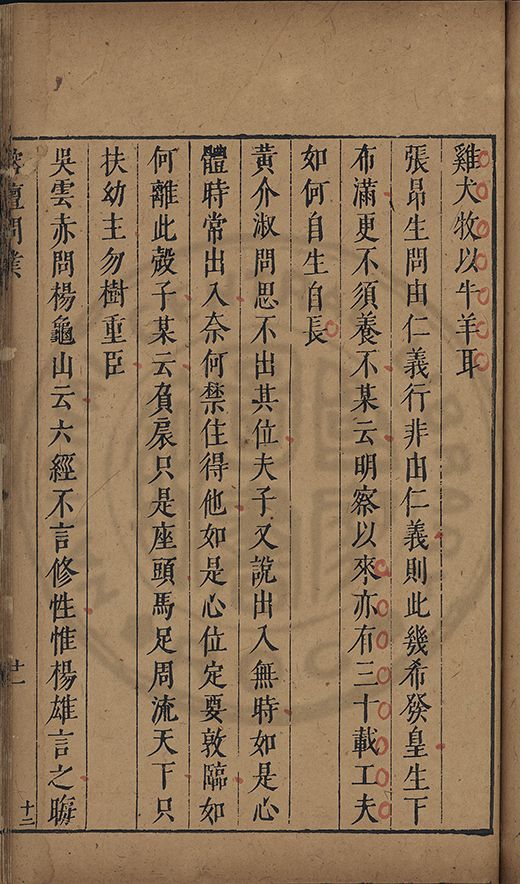 雞犬牧以牛羊耳
張昂生問由仁義行非由仁義則此幾希發皇生下
布滿更不須養不某云明察以來亦有三十載工夫
如何自生自長
黃介淑問思不出其位夫子又說出入無時如是心
體時常出入奈何禁住得他如是心位定要敦臨如
何離此殼子某云負扆只是座頭馬足周流天下只
扶幼主勿樹重臣
吳雲赤問楊龜山云六經不言修性惟楊雄言之晦
榕壇問業
十二